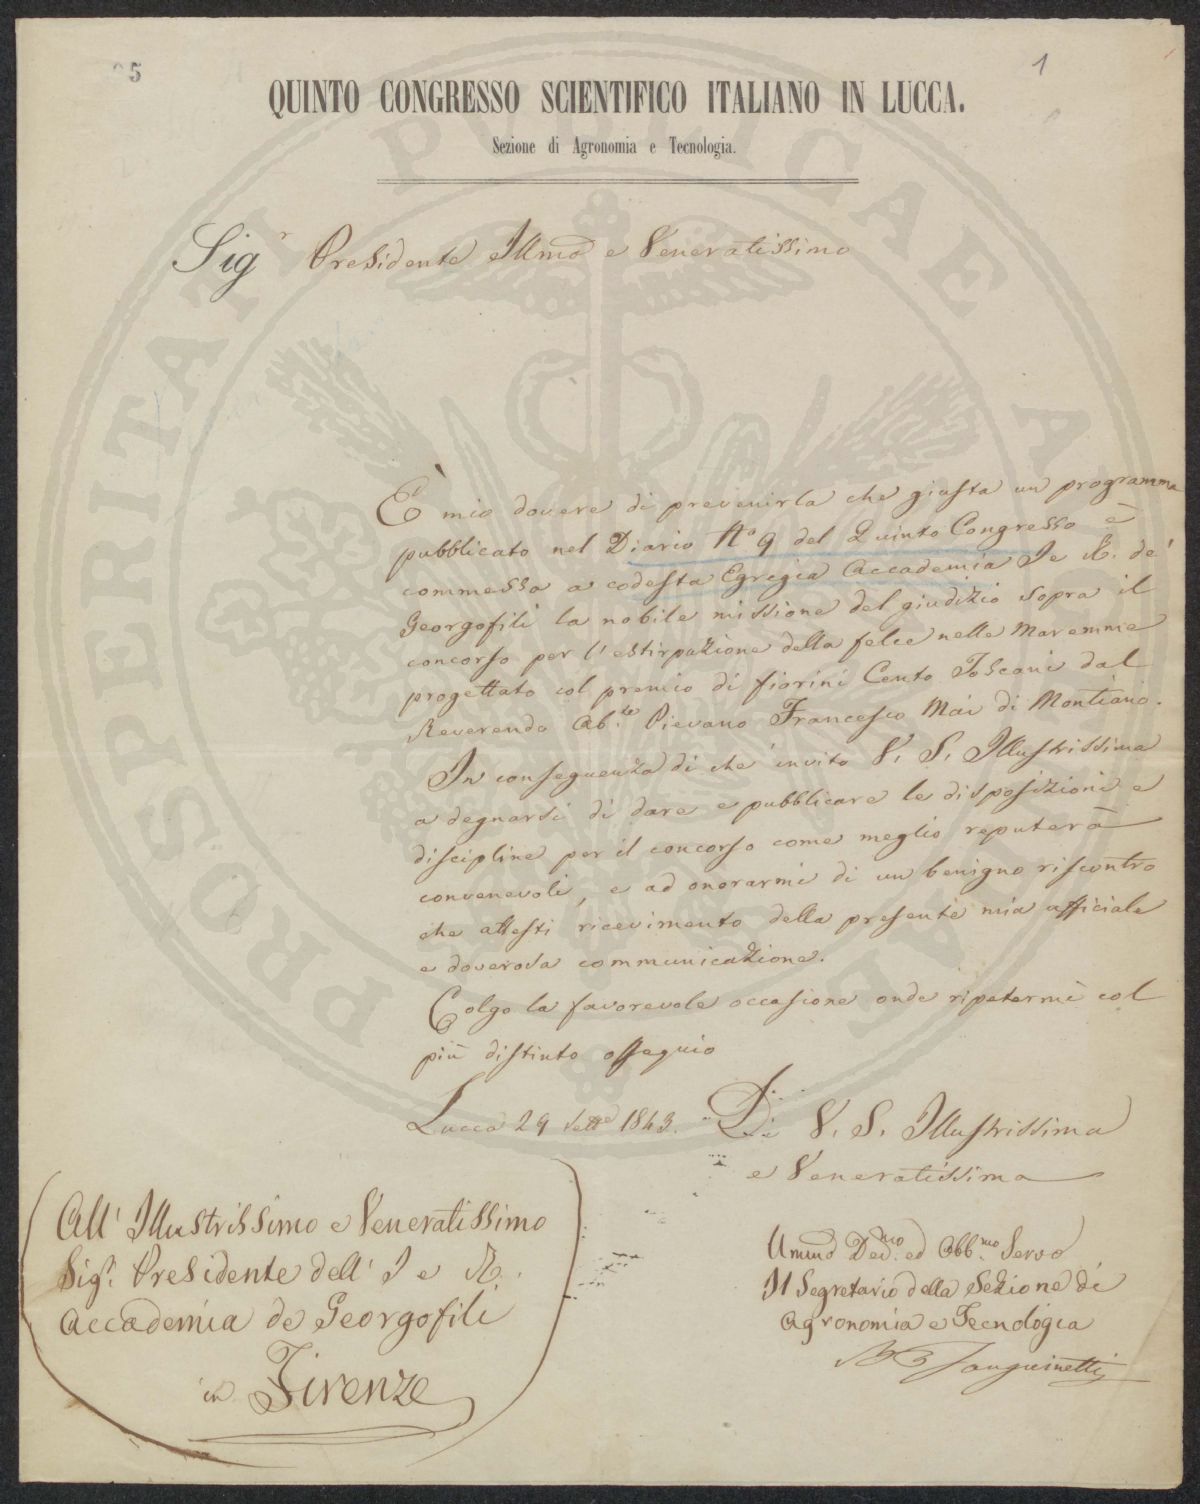 95
1
QUINTO CONGRESSO SCIENTIFICO ITALIANO IN LUCCA.
Sezione di Agronomia e Tecnologia.
Sigr Presidente Illmo e Veneratissimo
È mio dovere di prevenirla che giusta un programma
pubblicato nel Diario No 9 del Quinto Congresso è
commessa a codesta Egregia Accademia I e R. de'
Georgofili la nobile missione del giudizio sopra il
concorso per l'estirpazione della felce nelle Maremme
progettato col premio di fiorini Cento Toscani dal
Reverendo Ab.te Pievano Francesco Mai di Montiano.
In conseguenza di che invito V. S. Illustrissima
a degnarsi di dare e pubblicare le disposizioni e
discipline per il concorso come meglio reputerà
convenevoli, e ad onorarmi di un benigno riscontro
che attesti ricevimento della presente mia officiale
e doverosa communicazione.
Colgo la favorevole occasione onde ripetermi col
più distinto ossequio
Lucca 29 Sette 1843.
Di V. S. Illustrissima
e Veneratissima
All' Illustrissimo e Veneratissimo
Sigr. Presidente dell' I e R.
Accademia de Georgofili
in Firenze
Ummo Dev.mo ed Obb.mo Servo
Il Segretario della Sezione di
Agronomia e Tecnologia
Sanguinetti
PROSPERITATI PUBLICAE A